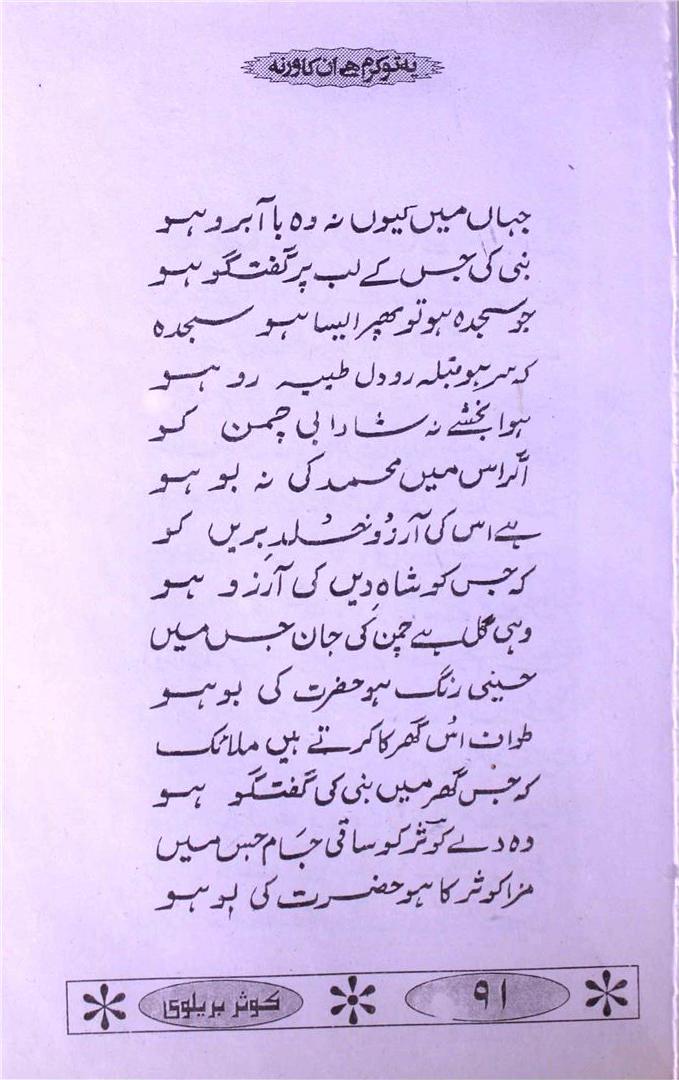 یہ تو کرم ہے ان کا ورنہ
جہاں میں کیوں نہ وہ با آبرو ہو
نبی کی جس کے لب پر گفتگو ہو
جو سجدہ ہو تو پھر ایسا ہو سجدہ
کہ سر ہو قبلہ رو دل طیبہ رو ہو
ہوا بخشے نہ شادابی چمن کو
اگر اس میں محمد کی نہ بو ہو
ہے اس کی آرزو خُلدِ بریں کو
کہ جس کو شاہِ دیں کی آرزو ہو
وہی گل ہے چمن کی جان جس میں
حسینی رنگ ہو حضرت کی بو ہو
طواف اُس گھر کا کرتے ہیں ملائک
کہ جس گھر میں نبی کی گفتگو ہو
وہ دے کوثر کو ساقی جَام جس میں
مزا کوثر کا ہو حضرت کی بو ہو
۹۱
کوثر بریلوی